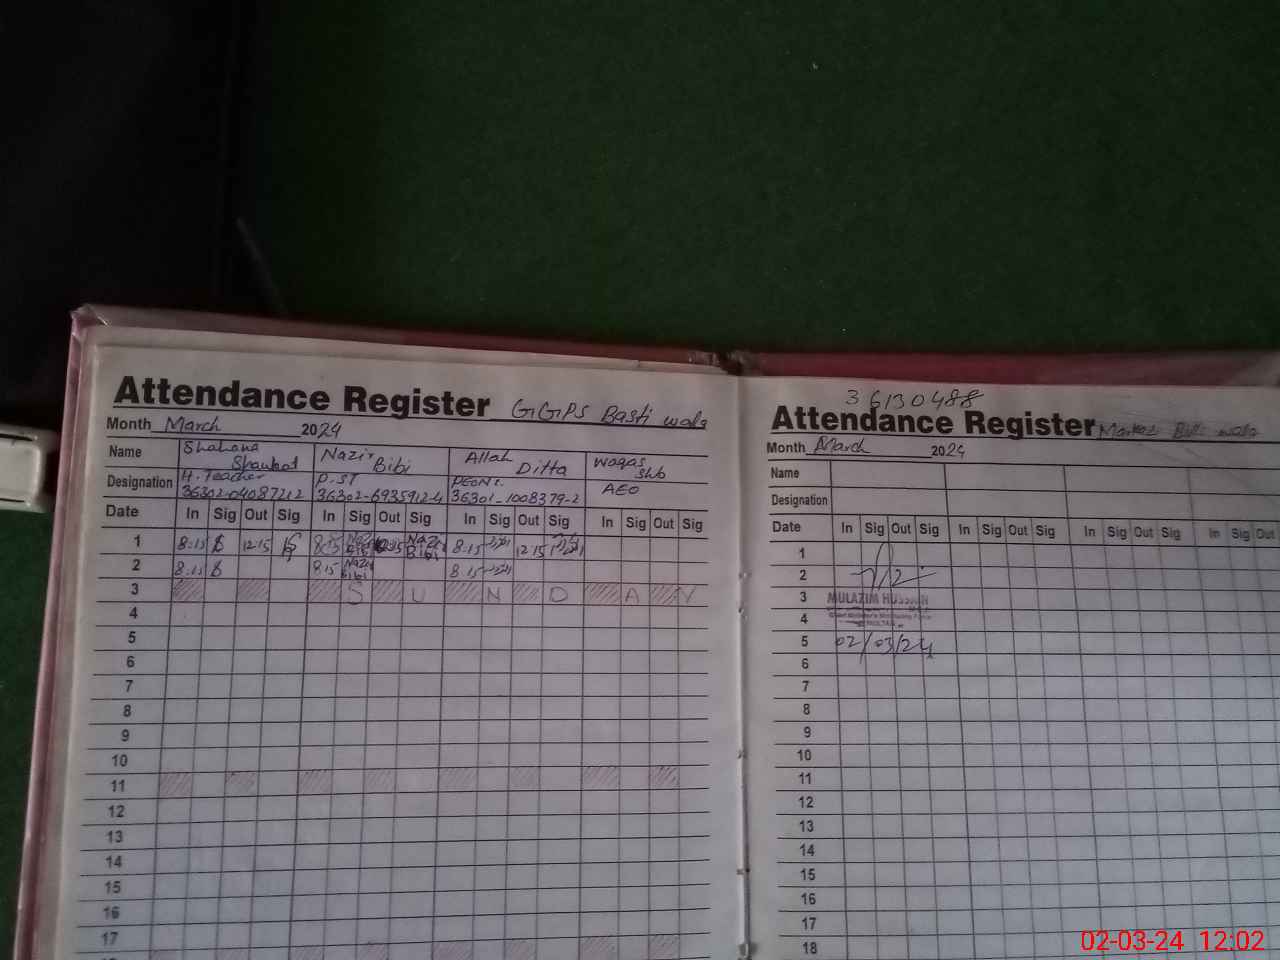 Attendance Register GGPS Basti wala
Month March 2024
Name Shahana Shaukat Nazir Bibi Allah Ditta Waqas Shb
Designation H. Teacher P.ST AEO
36302-04087212 36302-6935912-4 36301-1008379-2
Date In Sig Out Sig In Sig Out Sig In Sig Out Sig In Sig Out Sig
1 8:15 12:15 8:15 Nazir Bibi Nazir Bibi 8:15 12:15
2 8:15 8:15 Nazir Bibi 8:15
3 S U N D A Y
4
5
6
7
8
9
10
11
12
13
14
15
16
17
36130488
Attendance Register
Month March 2024
Name
Designation
Date In Sig Out Sig In Sig Out Sig In Sig Out Sig In Sig Out
1
2
3 MULAZIM HUSSAIN
4 MULTAN
5 02/03/24
6
7
8
9
10
11
12
13
14
15
16
17
18
02-03-24 12:02